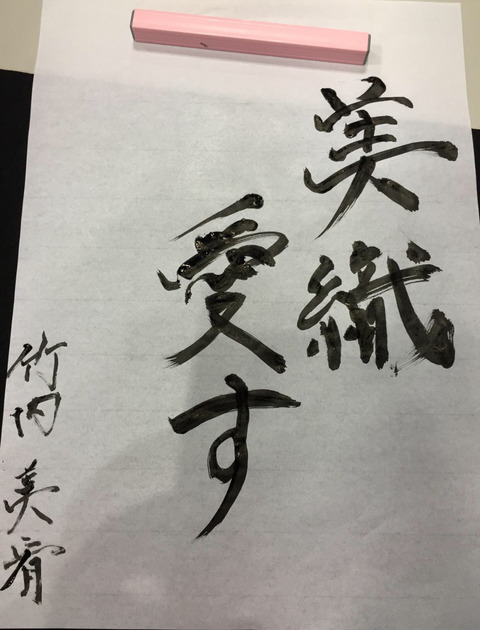 美織
愛す
竹内 美宵